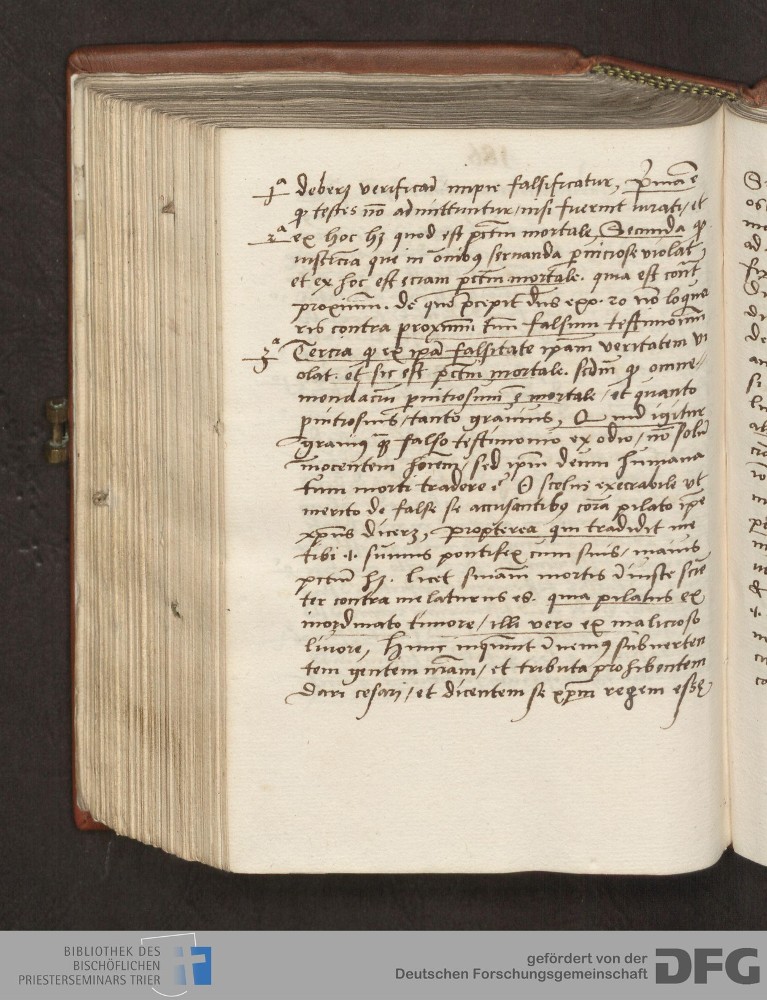 1ᵃ deberꝫ verificari impie falsificatur, p̄ma ē
qꝫ testes nō admittuntur / nisi fuerint iurati / et
2ᵃ ex hoc hꝫ quod est pctm̄ mortale Secunda qꝫ
iusticia que in omībus seruanda p̄niciose violat̄
et ex hoc est eciam pctm̄ mortale. quia est cont̄
proximū. de quo p̄cepit dn̄s exo. 20 nō loque
ris contra proximū tuū falsum testimoniū
3ᵃ Tercia qꝫ ex ip̄a falsitate ip̄am veritatem vi
olat. et sic est pctm̄ mortale. scdm̄ qꝫ omne
mendaciū p̄nitiosum ē mortale / et quanto
p̄nitiosius / tanto grauius, Quid igitur
grauius qꝫ falso testimonio ex odio / nō solū
innocentem hoīem / sed ip̄m deum humana
tum morti tradere O scelus execrabile vt
merito de false se accusantibꝰ corā pilato ip̄e
xp̄us dicerꝫ, propterea qui tradidit me
tibi .i. sum̄us pontifex cum suis / maius
pctm̄ hꝫ. licet sn̄iam mortis iniuste scie
ter contra me laturus es. quia pilatus ex
inordinato timore / illi vero ex malicioso
liuore, Hunc inquiunt inuenimꝰ subuerten
tem gentem nr̄am / et tributa prohibentem
dari cesari / et dicentem se xp̄m regem esse
BIBLIOTHEK DES
BISCHÖFLICHEN
PRIESTERSEMINARS TRIER
gefördert von der
Deutschen Forschungsgemeinschaft
DFG